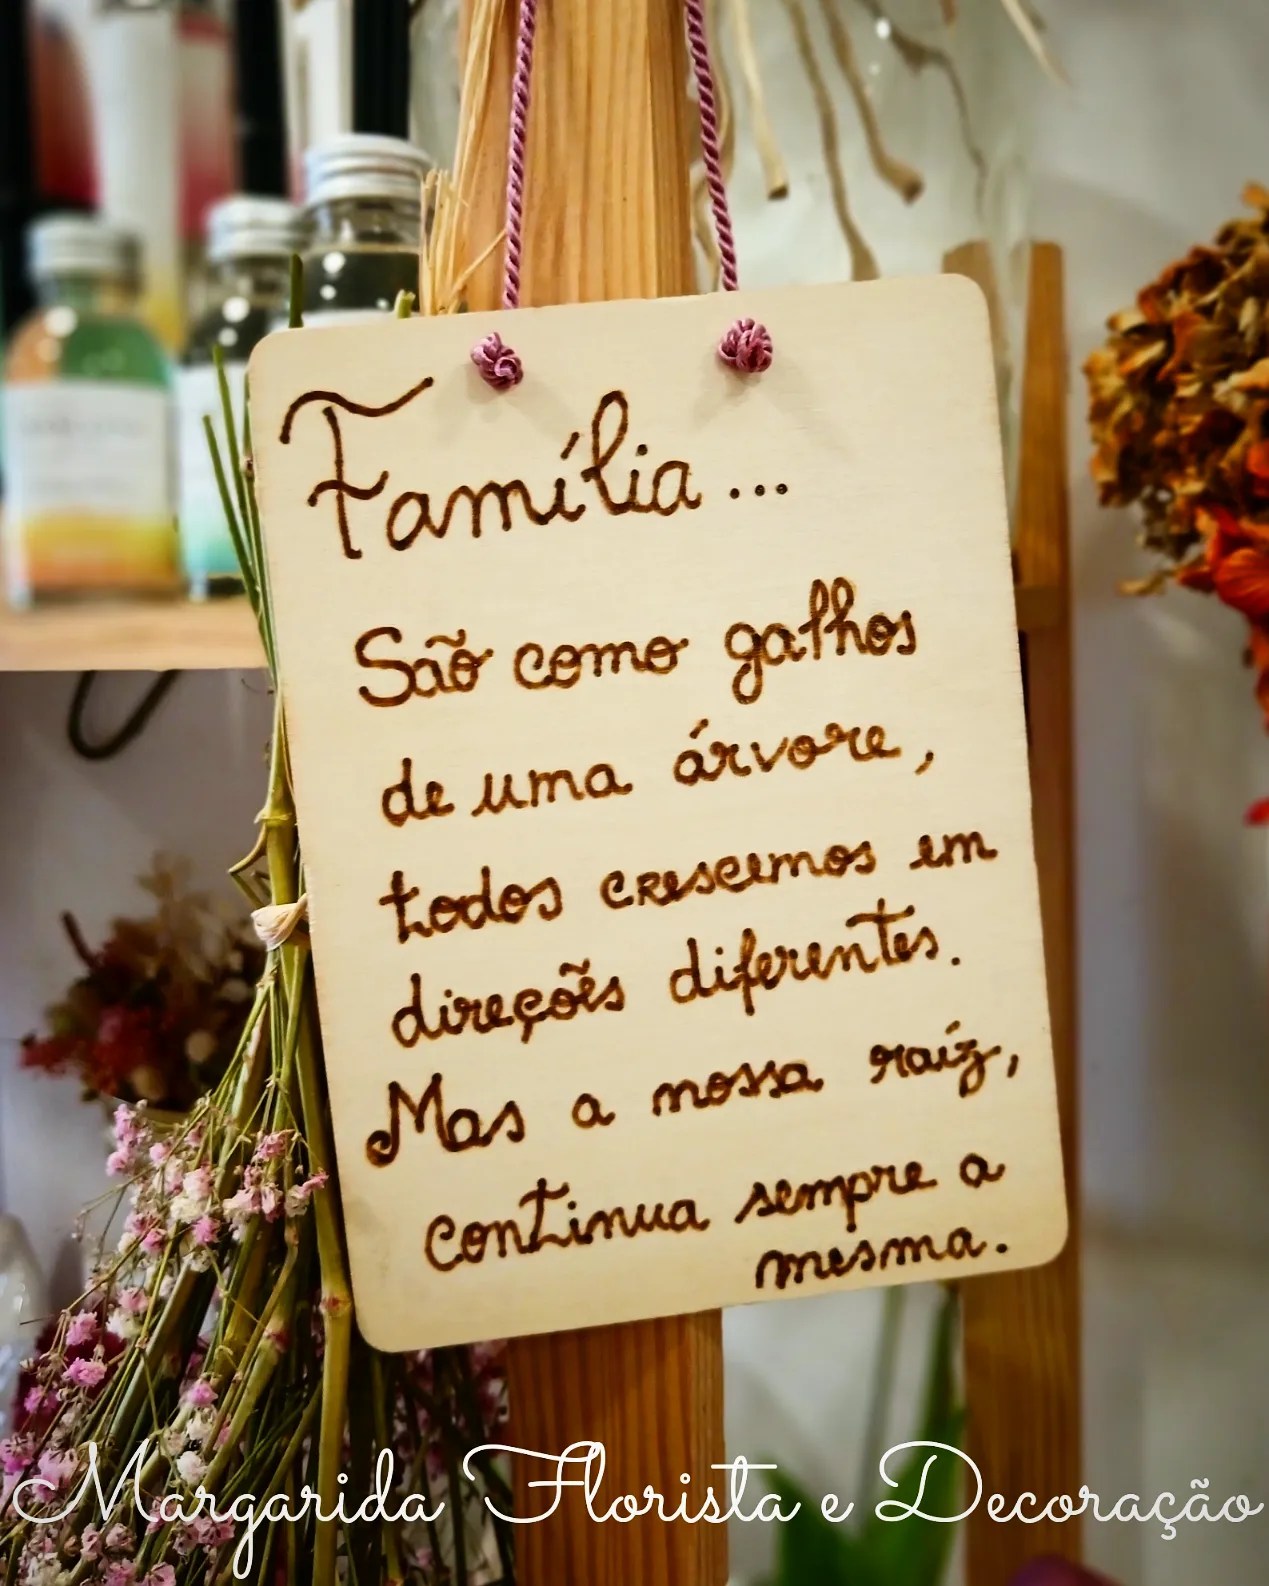 Família...
São como galhos
de uma árvore,
todos crescemos em
direções diferentes.
Mas a nossa raíz,
continua sempre a
mesma.
Margarida Florista e Decoração